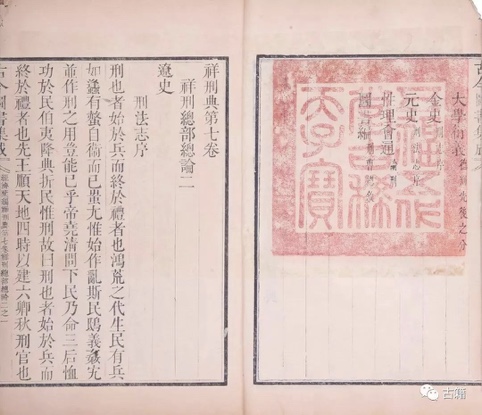 大學衍義
金史
元史 刑法志序
性理會通 論刑
圖書編
五福五代
堂古稀
天子寶
祥刑典第七卷
祥刑總部總論二
遼史
刑法志序
刑也者始於兵而終於禮者也鴻荒之代生民有兵
如蠭有螫自衞而已蚩尤惟始作亂斯民鴟義姦宄
並作刑之用豈能已乎帝堯清問下民乃命三后恤
功於民伯夷降典折民惟刑故曰刑也者始於兵而
終於禮者也先王順天地四時以建六卿秋刑官也
古今圖書集成
古籀